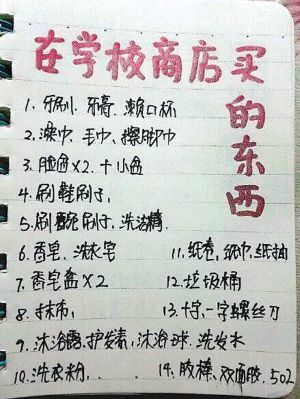 在学校商店买
的东西
1. 牙刷、牙膏、漱口杯
2. 澡巾、毛巾、擦脚巾
3. 脸盆×2. 十小盆
4. 刷鞋刷子,
5. 刷碗刷子, 洗洁精.
6. 香皂、洗衣皂
7. 香皂盒×2
8. 抹布,
9. 沐浴露、护发素, 沐浴球. 洗发水
10. 洗衣粉.
11. 纸卷, 纸巾, 纸抽
12. 垃圾桶
13. 十字, 一字螺丝刀
14. 胶棒、双面胶, 502